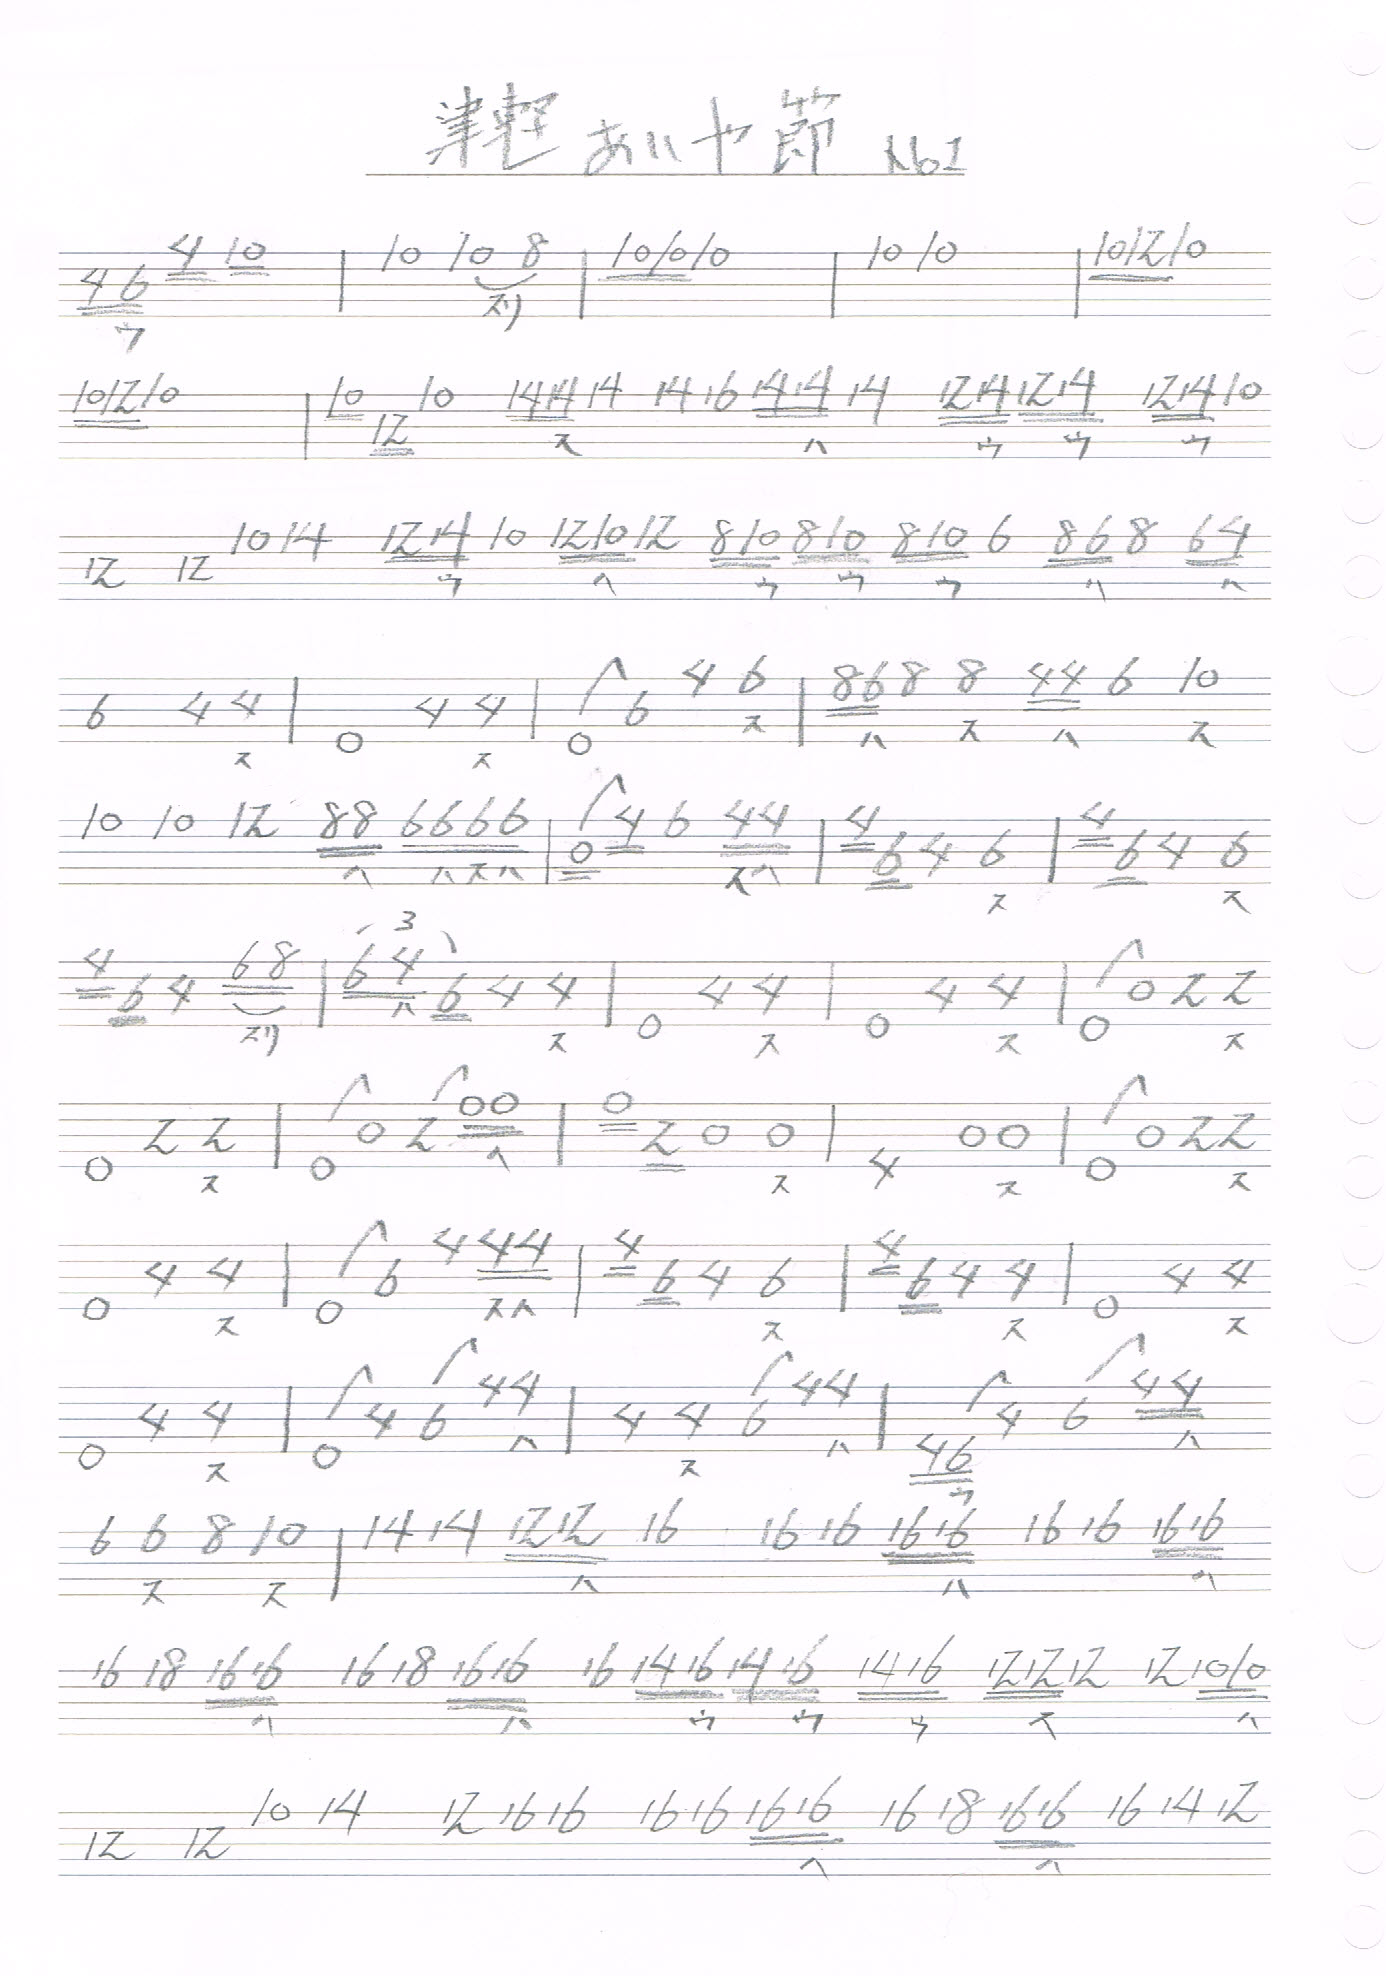 津軽あいや節 No1
4 6 4 10 | 10 10 8 | 10 10 10 | 10 10 | 10 12 10
ウ スリ
10 12 10 | 10 12 10 14 14 14 14 16 14 14 14 12 14 12 14 12 14 10
ス ハ ウ ウ ウ
12 12 10 14 12 14 10 12 10 12 8 10 8 10 8 10 6 8 6 8 6 4
ウ ハ ウ ウ ウ ハ ハ
6 4 4 | 0 4 4 | 0 6 4 6 | 8 6 8 8 4 4 6 10
ス ス ス ハ ス ハ ス
10 10 12 8 8 6 6 6 6 | 0 4 6 4 4 | 4 6 4 6 | 4 6 4 6
ハ ハ ス ハ ス ハ ス ス
3
4 6 4 6 8 | 6 4 6 4 4 | 0 4 4 | 0 4 4 | 0 0 2 2
スリ ハ ス ス ス ス
0 2 2 | 0 0 2 0 0 | 0 2 0 0 | 4 0 0 | 0 0 2 2
ス ハ ス ス ス
0 4 4 | 0 6 4 4 4 | 4 6 4 6 | 4 6 4 4 | 0 4 4
ス ス ハ ス ス ス
0 4 4 | 0 4 6 4 4 | 4 4 6 4 4 | 4 6 4 6 4 4
ス ハ ス ハ ウ ハ
6 6 8 10 | 14 14 12 12 16 16 16 16 16 16 16 16 16
ス ス ハ ハ ハ
16 18 16 16 16 18 16 16 16 14 16 14 16 14 16 12 12 12 12 10 10
ハ ハ ウ ウ ウ ス ハ
12 12 10 14 12 16 16 16 16 16 16 16 18 16 16 16 14 12
ハ ハ